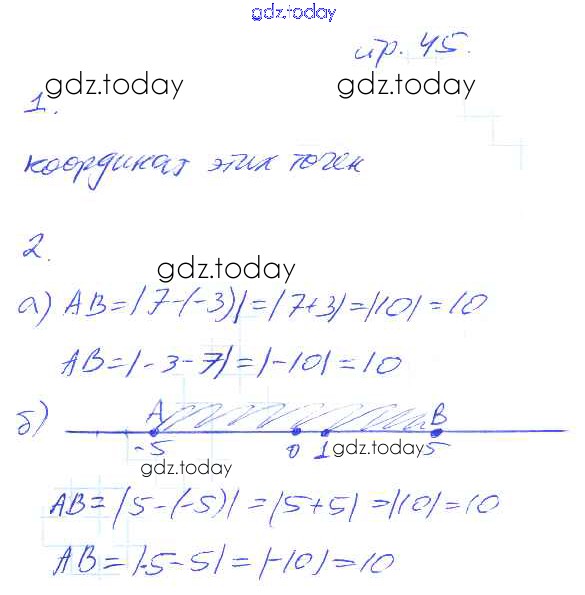 gdz.today
стр. 45.
gdz.today gdz.today
1.
координат этих точек
2.
gdz.today
а) AB=|7-(-3)|=|7+3|=|10|=10
AB=|-3-7|=|-10|=10
б) A B
-5 0 1 5
gdz.today
gdz.today
AB=|5-(-5)|=|5+5|=|10|=10
AB=|-5-5|=|-10|=10